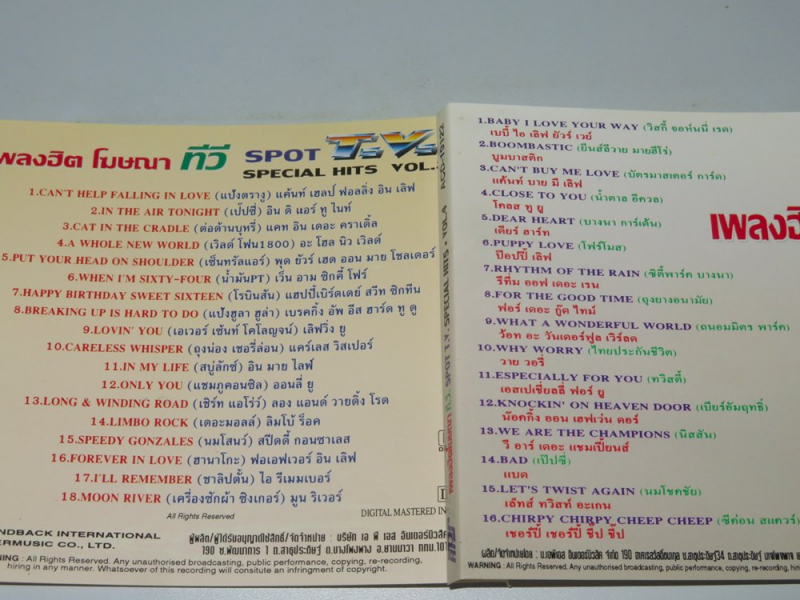 เพลงฮิต โฆษณา ทีวี SPOT T.V.
SPECIAL HITS VOL.
1.CAN'T HELP FALLING IN LOVE (แป้งตรางู) แค้นท์ เฮลป์ ฟอลลิ่ง อิน เลิฟ
2.IN THE AIR TONIGHT (เป๊ปซี่) อิน ดิ แอร์ ทู ไนท์
3.CAT IN THE CRADLE (ต่อต้านบุหรี่) แคท อิน เดอะ คราเดิ้ล
4.A WHOLE NEW WORLD (เวิลด์ โฟน1800) อะ โฮล นิว เวิลด์
5.PUT YOUR HEAD ON SHOULDER (เซ็นทรัลแอร์) พุด ยัวร์ เฮด ออน มาย โชลเดอร์
6.WHEN I'M SIXTY-FOUR (น้ำมันPT) เว็น อาม ซิกตี้ โฟร์
7.HAPPY BIRTHDAY SWEET SIXTEEN (โรบินสัน) แฮปปี้เบิร์ดเดย์ สวีท ซิกทีน
8.BREAKING UP IS HARD TO DO (แป้งฮูลา ฮูล่า) เบรคกิ้ง อัพ อีส ฮาร์ด ทู ดู
9.LOVIN' YOU (เอเวอร์ เซ้นท์ โคโลญจน์) เลิฟวิ่ง ยู
10.CARELESS WHISPER (ถุงน่อง เชอรี่ล่อน) แคร์เลส วิสเปอร์
11.IN MY LIFE (สบู่ลักซ์) อิน มาย ไลฟ์
12.ONLY YOU (แชมภูคอนซิล) ออนลี่ ยู
13.LONG & WINDING ROAD (เชิร์ท แอโร่ว์) ลอง แอนด์ วายดิ้ง โรด
14.LIMBO ROCK (เดอะมอลล์) ลิมโบ้ ร็อค
15.SPEEDY GONZALES (นมโสนว์) สปีดตี้ กอนซาเลส
16.FOREVER IN LOVE (ฮานาโกะ) ฟอเอฟเวอร์ อิน เลิฟ
17.I'LL REMEMBER (ชาลิปตั้น) ไอ รีเมมเบอร์
18.MOON RIVER (เครื่องซักผ้า ซิงเกอร์) มูน ริเวอร์
All Rights Reserved
DIGITAL MASTERED IN
NDBACK INTERNATIONAL
ERMUSIC CO., LTD.
ผู้ผลิต/ผู้ได้รับอนุญาตใช้สิทธิ์/จัดจำหน่าย : บริษัท เอ พี เอส อินเตอร์มิวสิค
190 ซ.พัฒนาการ 1 ถ.สาธุประดิษฐ์ ต.บางโพงพาง อ.ยานนาวา กทม.10
NING : All Rights Reserved. Any unauthorised broadcasting, public performance, copying, re-recording,
hiring in any manner. Whatsoever of this recording will consitute an infringment of copyright.
ACD-19122
เพลงฮิตโฆษณา ทีวี SPOT T.V. SPECIAL HITS • VOL.4
1.BABY I LOVE YOUR WAY (วิสกี้ จอห์นนี่ เรด)
เบบี้ ไอ เลิฟ ยัวร์ เวย์
2.BOOMBASTIC (ยีนส์ลีวาย มายฮีโร่)
บูมบาสติก
3.CAN'T BUY ME LOVE (บัตรมาสเตอร์ การ์ด)
แค้นท์ บาย มี เลิฟ
4.CLOSE TO YOU (น้ำตาล อีควล)
โคลส ทู ยู
5.DEAR HEART (บางนา การ์เด้น)
เดียร์ ฮาร์ท
6.PUPPY LOVE (โฟร์โมส)
ป๊อปปี้ เลิฟ
7.RHYTHM OF THE RAIN (ซิตี้พาร์ค บางนา)
รีทึ่ม ออฟ เดอะ เรน
8.FOR THE GOOD TIME (ถุงยางอนามัย)
ฟอร์ เดอะ กู๊ด ไทม์
9.WHAT A WONDERFUL WORLD (ถนอมมิตร พาร์ค)
ว้อท อะ วันเดอร์ฟูล เวิร์ลด
10.WHY WORRY (ไทยประกันชีวิต)
วาย วอรี่
11.ESPECIALLY FOR YOU (ทวิสตี้)
เอสเปเชียลลี่ ฟอร์ ยู
12.KNOCKIN' ON HEAVEN DOOR (เบียร์อัมฤทธิ์)
น๊อคกิ้ง ออน เฮฟเว่น ดอร์
13.WE ARE THE CHAMPIONS (นิสสัน)
วี อาร์ เดอะ แชมเปี้ยนส์
14.BAD (เป๊ปซี่)
แบด
15.LET'S TWIST AGAIN (นมโชคชัย)
เล็ทส์ ทวิสท์ อะเกน
16.CHIRPY CHIRPY CHEEP CHEEP (ซีค่อน สแควร์)
เชอร์ปี้ เชอร์ปี้ ชีป ชีป
เพลงฮิ
WARNING : All Rights Reserved. Any unauthorised broadcasting, public performance, copying, re-recording,